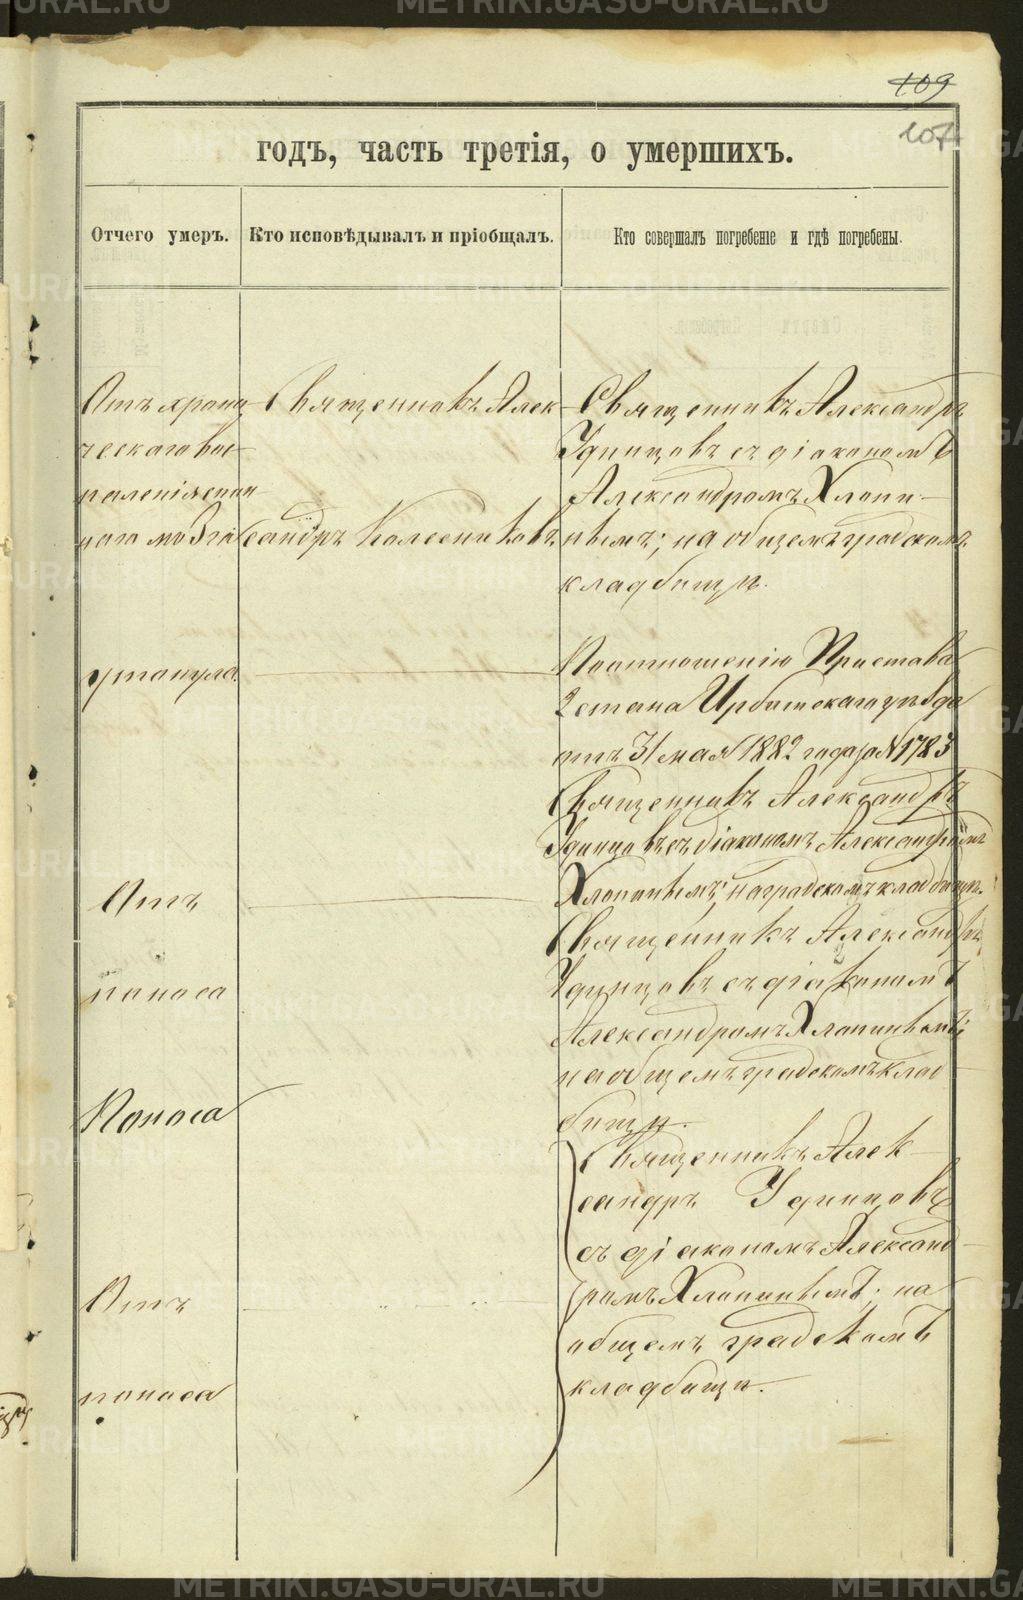 109
107
годъ, часть третія, о умершихъ.
Отчего умеръ.
Кто исповѣдывалъ и пріобщалъ.
Кто совершалъ погребеніе и гдѣ погребены.
Отъ хрони
ческаго вос-
паленія спин
ного мозга
Священникъ Алек-
сандръ Колесниковъ.
Священникъ Александръ
Удинцовъ съ діакономъ
Александромъ Хлопи-
нымъ; на общемъ градскомъ
кладбищѣ.
утонула.
По отношенію Пристава
2 стана Ирбитскаго уѣзда
отъ 31 мая 1882 года за № 1783
Священникъ Александръ
Удинцовъ съ діакономъ Александромъ
Хлопинымъ; на градскомъ кладбищѣ.
Отъ
поноса
Священникъ Александръ
Удинцовъ съ діакономъ
Александромъ Хлопинымъ;
на общемъ градскомъ клад
бищѣ.
Поноса
Отъ
поноса
Священникъ Алек-
сандръ Удинцовъ
съ діакономъ Александ-
ромъ Хлопинымъ; на
общемъ градскомъ
кладбищѣ.
METRIKI.GASO-URAL.RU